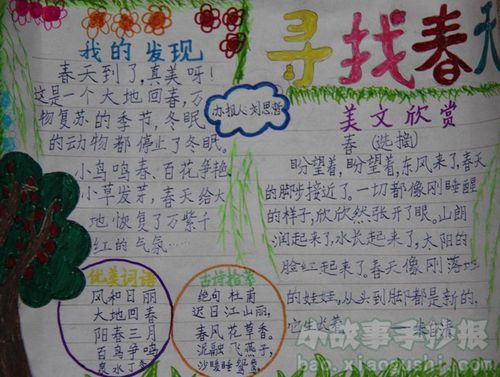 寻找春天
我的发现
春天到了,真美呀!
这是一个大地回春,万
物复苏的季节,冬眠
的动物都停止了冬眠。
小鸟鸣春、百花争艳、
小草发芽,春天给大
地恢复了万紫千
红的气氛……
办报人:刘思哲
美文欣赏
春 (选摘)
盼望着,盼望着,东风来了,春天
的脚步接近了。一切都像刚睡醒
的样子,欣欣然张开了眼。山朗
润起来了,水长起来了,太阳的
脸红起来了。春天像刚落地
的娃娃,从头到脚都是新的,
它生长着。 ——朱自清
优美词语
风和日丽
大地回春
阳春三月
百鸟争鸣
古诗摘草
绝句 杜甫
迟日江山丽,
春风花草香。
泥融飞燕子,
沙暖睡鸳鸯。
小故事手抄报
bao.xiaogushi.com